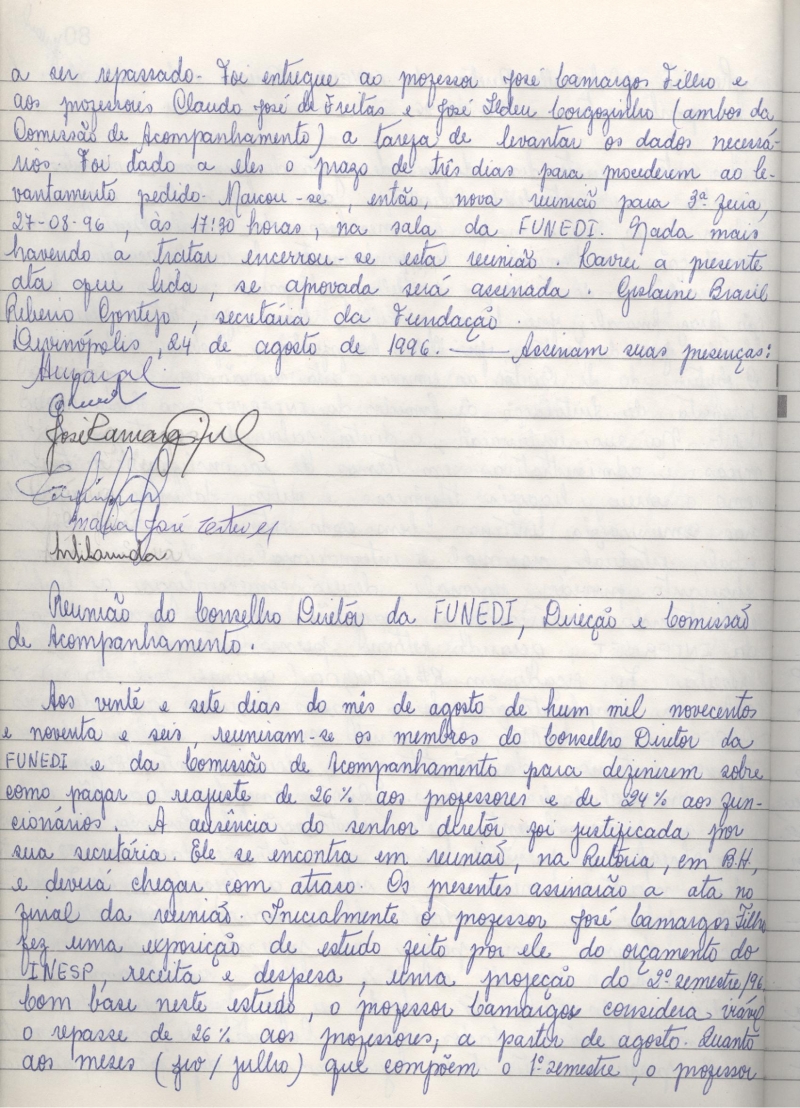 a ser repassado. Foi entregue ao professor José Camargos Filho e
aos professores Claudo José de Freitas e José Ildeu Corgozinho (ambos da
Comissão de Acompanhamento) a tarefa de levantar os dados necessá-
rios. Foi dado a eles o prazo de três dias para procederem ao le-
vantamento pedido. Marcou-se, então, nova reunião para 3ª feira,
27-08-96, às 17:30 horas, na sala da FUNEDI. Nada mais
havendo a tratar encerrou-se esta reunião. Lavrei a presente
ata que lida, se aprovada será assinada. Gislaine Brasil
Ribeiro Gontijo, secretária da Fundação.
Divinópolis, 24 de agosto de 1996. — Assinam suas presenças:
José Camargos
Maria José
Reunião do Conselho Diretor da FUNEDI, Direção e Comissão
de Acompanhamento.
Aos vinte e sete dias do mês de agosto de hum mil novecentos
e noventa e seis, reuniram-se os membros do Conselho Diretor da
FUNEDI e da Comissão de Acompanhamento para definirem sobre
como pagar o reajuste de 26% aos professores e de 24% aos fun-
cionários. A ausência do senhor diretor foi justificada por
sua secretária. Ele se encontra em reunião, na Reitoria, em B.H,
e deverá chegar com atraso. Os presentes assinarão a ata no
final da reunião. Inicialmente o professor José Camargos Filho
fez uma exposição de estudo feito por ele do orçamento do
INESP, receita e despesa, e uma projeção do 2º semestre/96.
Com base neste estudo, o professor Camargos considera viável
o repasse de 26% aos professores, a partir de agosto. Quanto
aos meses (fev/julho) que compõem o 1º semestre, o professor